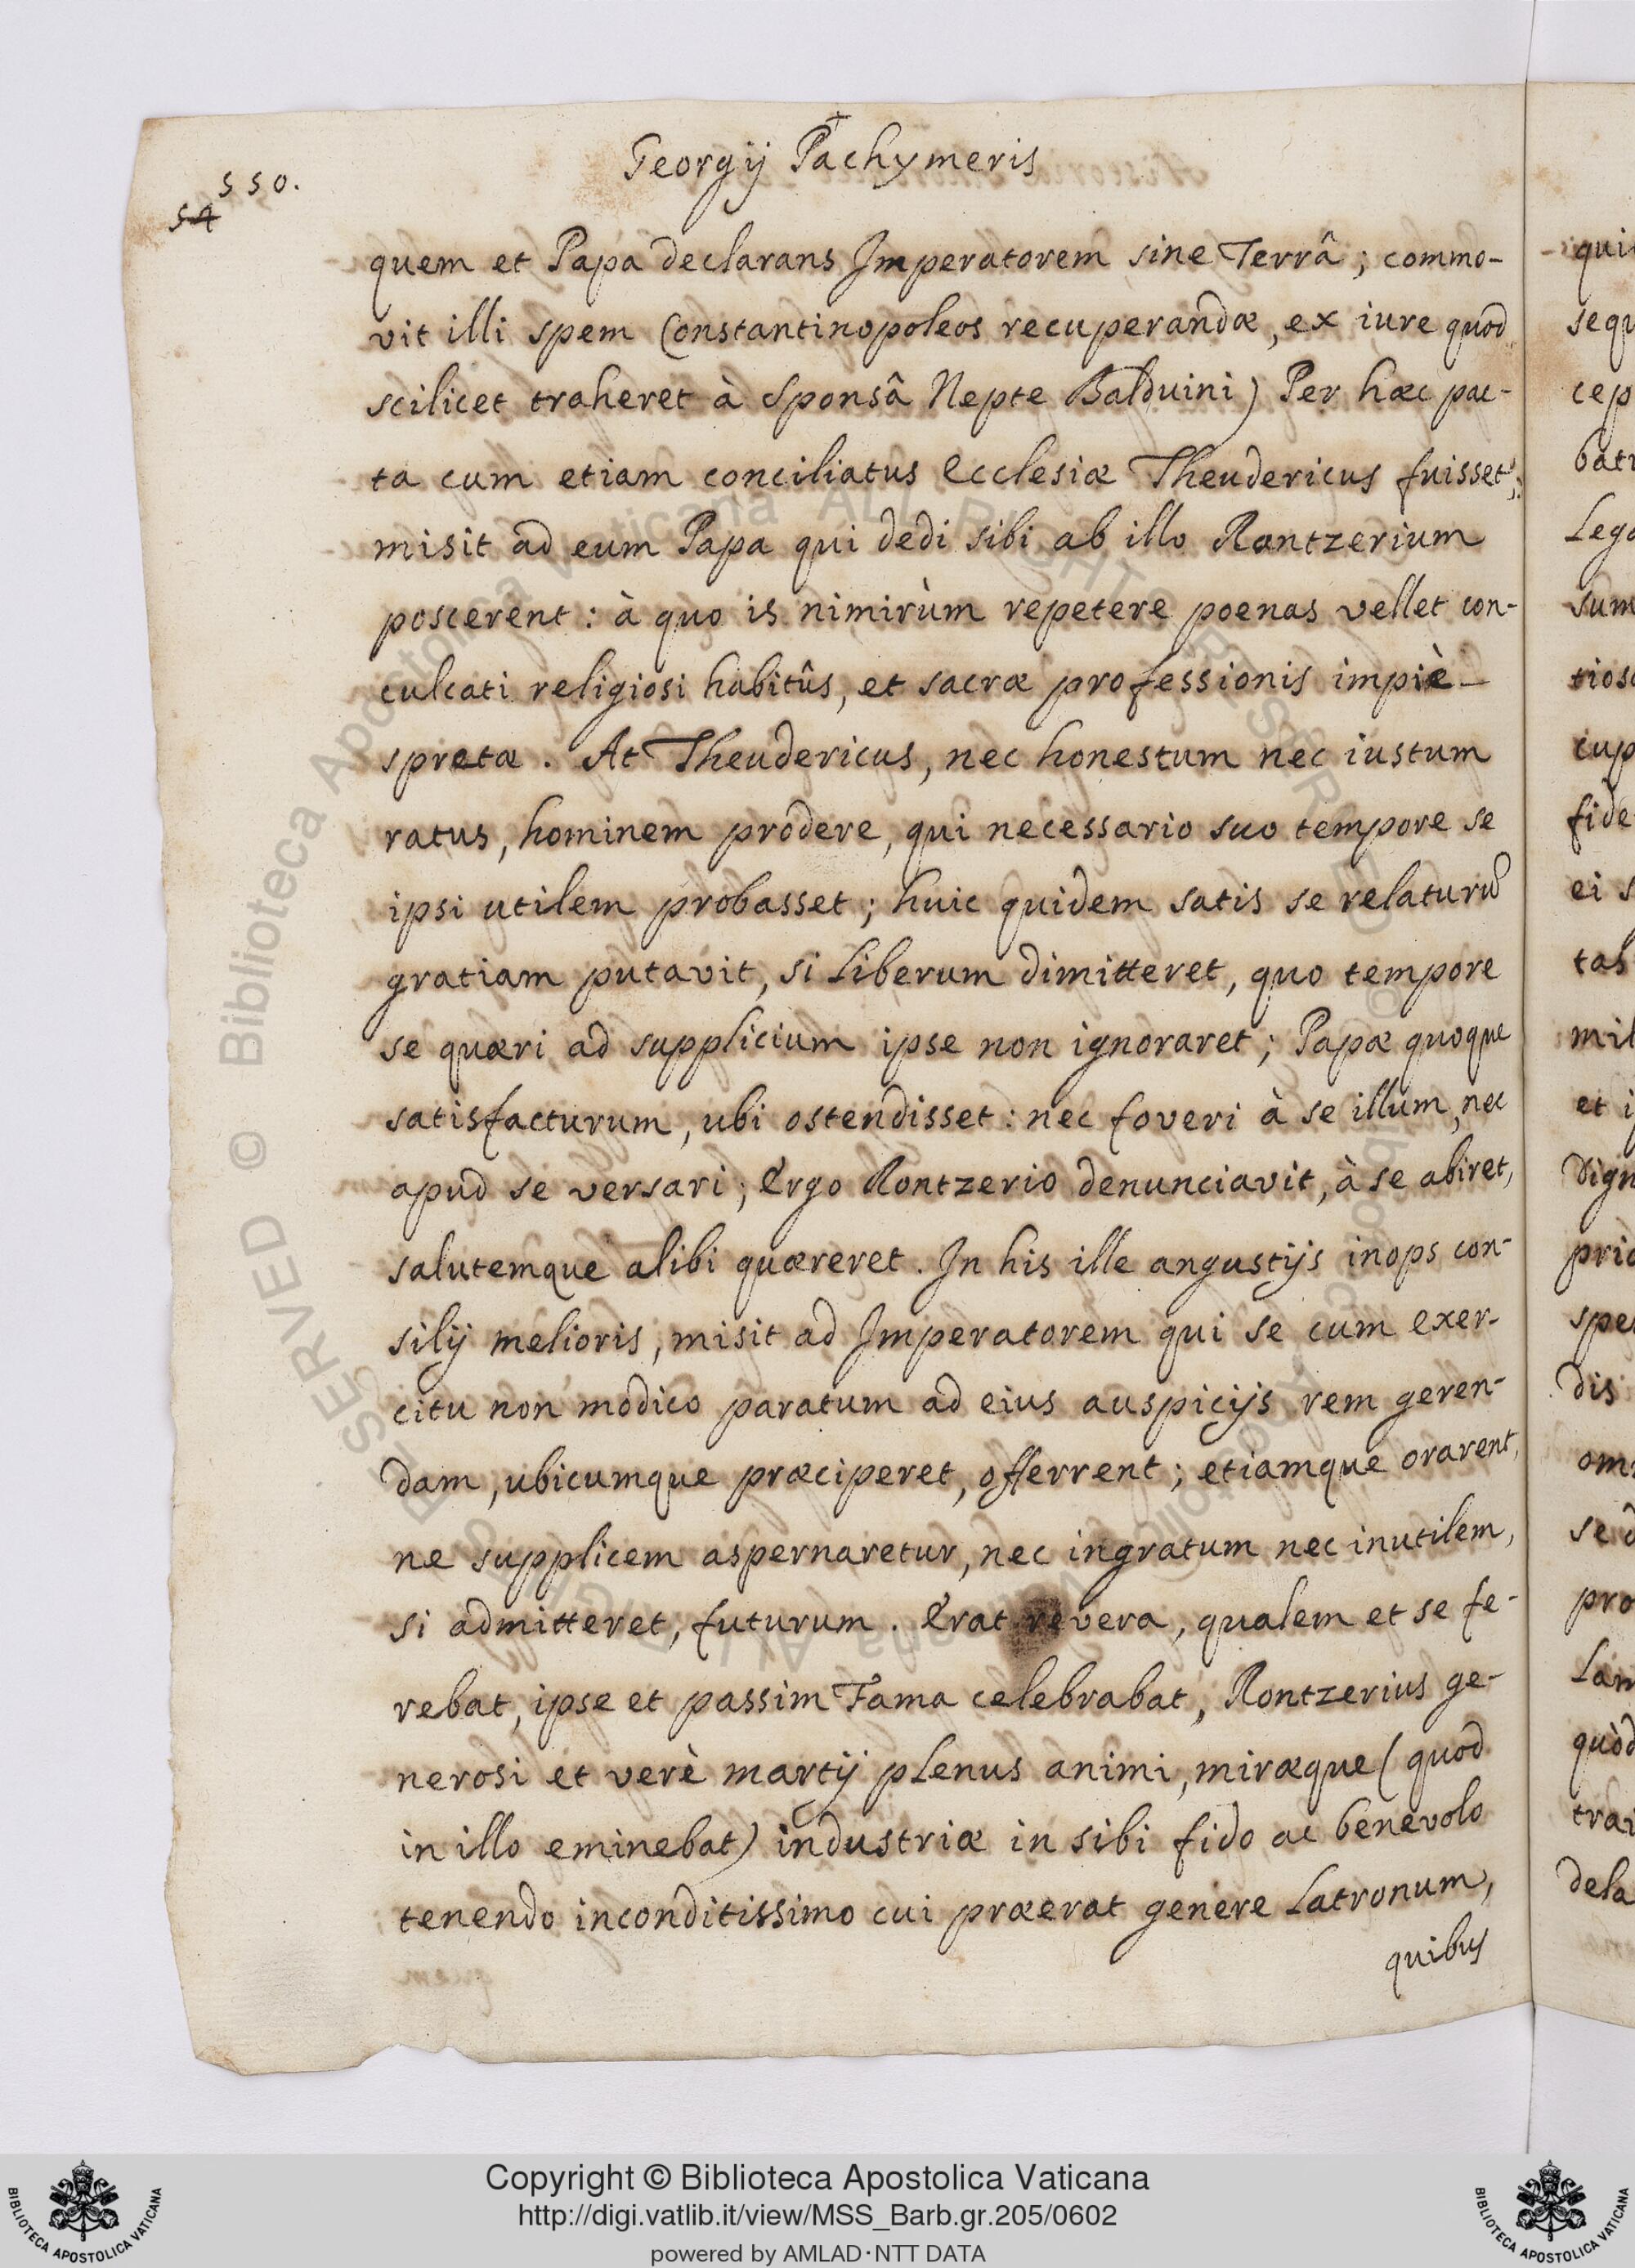 550.
54
Georgij Pachymeris
quem et Papa declarans Imperatorem sine Terrâ; commo-
vit illi spem Constantinopoleos recuperandæ, ex iure quod
scilicet traheret à Sponsâ Nepte Balduini) Per hæc pac-
ta cum etiam conciliatus Ecclesiæ Theudericus fuisset;
misit ad eum Papa qui dedi sibi ab illo Rontzerium
poscerent: à quo is nimirùm repetere poenas vellet con-
culcati religiosi habitûs, et sacræ professionis impiè
spretæ. At Theudericus, nec honestum nec iustum
ratus, hominem prodere, qui necessario suo tempore se
ipsi utilem probasset; huic quidem satis se relaturũ
gratiam putavit, si liberum dimitteret, quo tempore
se quæri ad supplicium ipse non ignoraret; Papæ quoque
satisfacturum, ubi ostendisset: nec foveri à se illum, nec
apud se versari; Ergo Rontzerio denunciavit, à se abiret,
salutemque alibi quæreret. In his ille angustijs inops con-
silij melioris, misit ad Imperatorem qui se cum exer-
citu non modico paratum ad eius auspicijs rem geren-
dam, ubicumque præciperet, offerrent; etiamque orarent,
ne supplicem aspernaretur, nec ingratum nec inutilem,
si admitteret, futurum. Erat revera, qualem et se fe-
rebat, ipse et passim Fama celebrabat, Rontzerius ge-
nerosi et verè martij plenus animi, miræque (quod
in illo eminebat) industriæ in sibi fido ac benevolo
tenendo inconditissimo cui præerat genere Latronum,
quibus
Copyright © Biblioteca Apostolica Vaticana
http://digi.vatlib.it/view/MSS_Barb.gr.205/0602
powered by AMLAD·NTT DATA
BIBLIOTECA APOSTOLICA VATICANA
BIBLIOTECA APOSTOLICA VATICANA